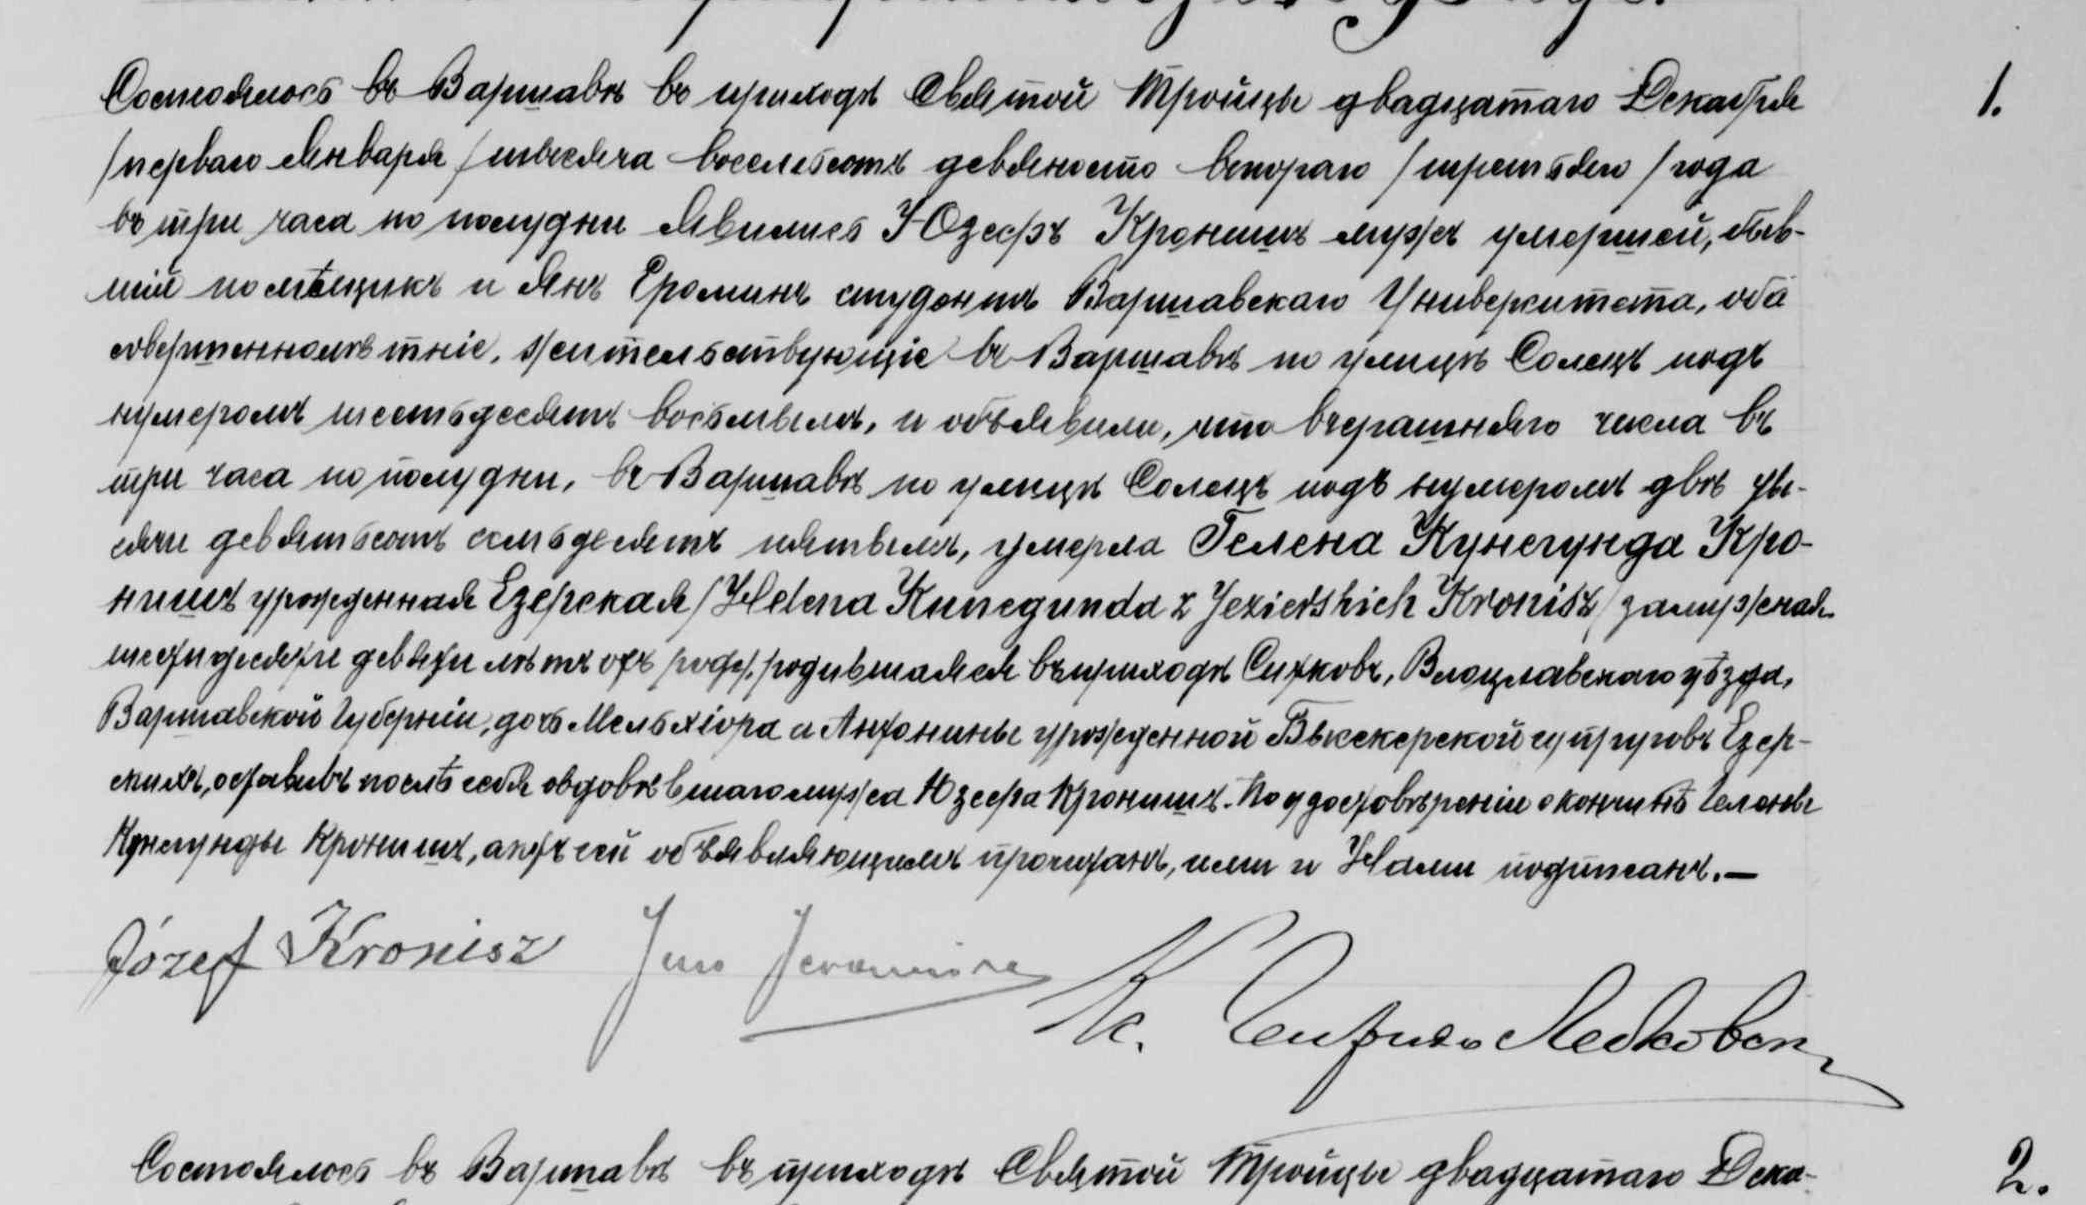 Состоялось въ Варшавѣ въ приходѣ Святой Тройцы двадцатаго Декабря
1.
/перваго Января/ тысяча восемьсотъ девяносто втораго /третьяго/ года
въ три часа по полудни. Явились Юзефъ Кронишъ мужъ умершей, быв-
шій помѣщикъ и Янъ Ероминъ студентъ Варшавскаго Университета, оба
совершеннолѣтніе, жительствующіе въ Варшавѣ по улицѣ Солецъ подъ
нумеромъ шестьдесятъ восьмымъ, и объявили, что вчерашняго числа въ
три часа по полудни, въ Варшавѣ по улицѣ Солецъ подъ нумеромъ двѣ ты-
сячи девятьсотъ семьдесятъ пятымъ, умерла Гелена Кунегунда Кро-
нишъ урожденная Езерская /Helena Kunegunda z Jezierskich Kronisz/ замужная
шестидесяти девяти лѣтъ отъ роду, родившаяся въ приходѣ Влоцлавскаго уѣзда,
Варшавской Губерніи, дочь Мельхіора и Антонины урожденной супруговъ Езер-
скихъ, оставивъ послѣ себя овдовѣвшаго мужа Юзефа Кронишъ. По удостовѣреніи о кончинѣ Гелены
Кунегунды Кронишъ, актъ сей объявляющимъ прочитанъ, ими и Нами подписанъ.—
Józef Kronisz Jan К.
Состоялось въ Варшавѣ въ приходѣ Святой Тройцы двадцатаго Дека-
2.